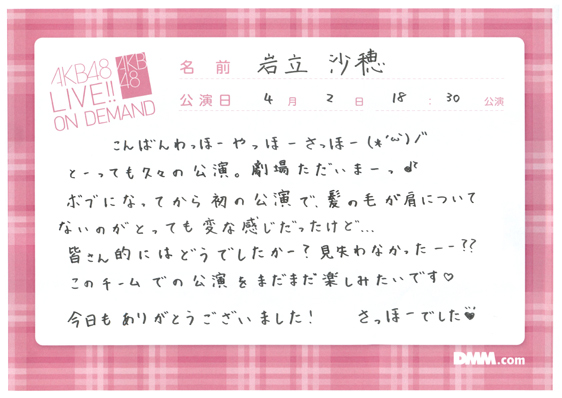 AKB48
LIVE!!
ON DEMAND
AKB
48
名 前 岩立 沙穂
公演日 4 月 2 日 18 : 30 公演
こんばんわっほー やっほー さっほー (*'ω')ノ"
とーっても久々の公演。劇場ただいまーっ♪
ボブになってから初の公演で、髪の毛が肩について
ないのがとっても変な感じだったけど...
皆さん的にはどうでしたかー？見失わなかったーー??
このチームでの公演をまだまだ楽しみたいです♡
今日もありがとうございました！ さっほーでした♥
DMM.com